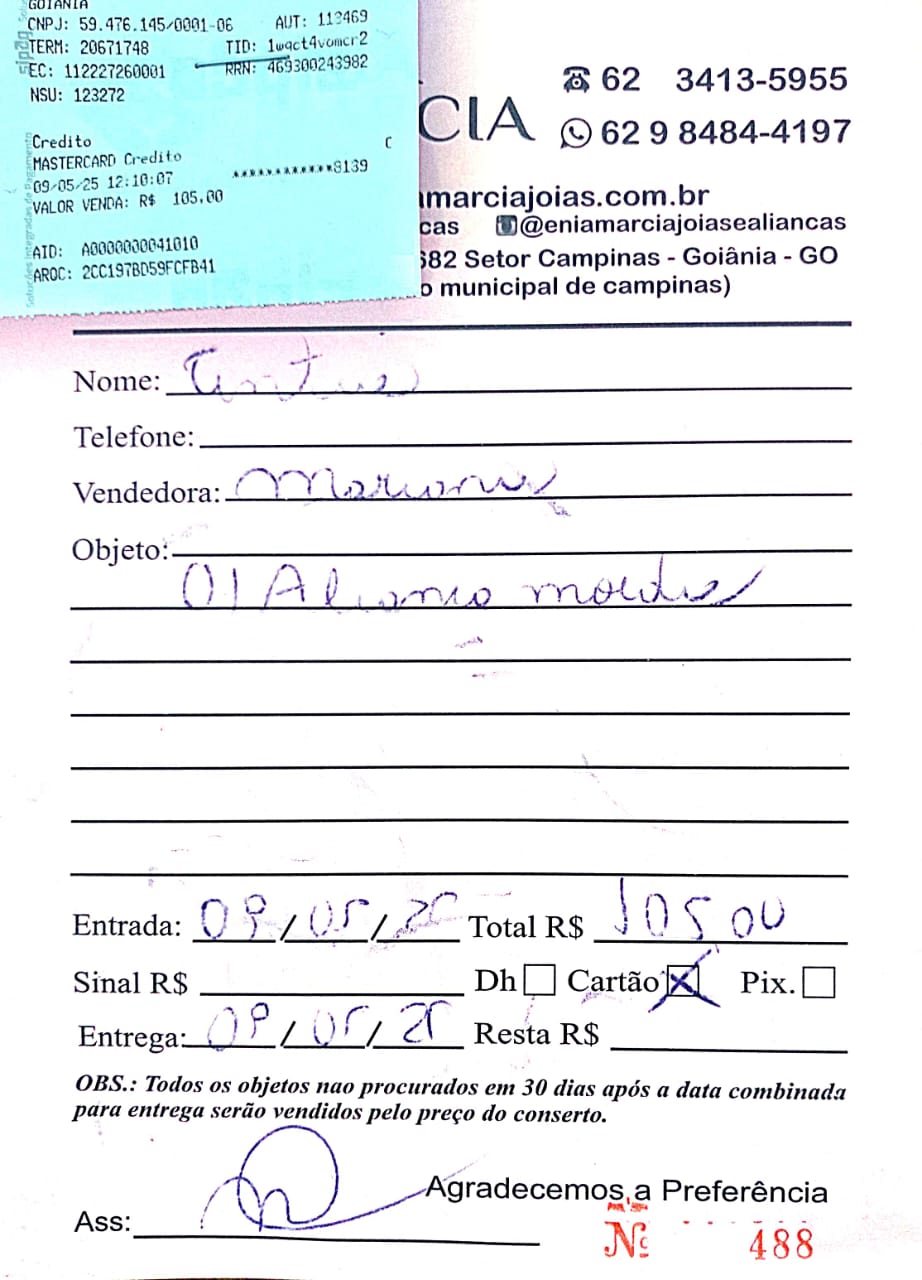 GOIANIA
CNPJ: 59.476.145/0001-06 AUT: 112469
TERM: 20671748 TID: 1wqct4vomcr2
EC: 112227260001 RRN: 469300243982
NSU: 123272
Credito C
MASTERCARD Credito
09-05-25 12:10:07 ************8139
VALOR VENDA: R$ 105,00
AID: A0000000041010
ARQC: 2CC197BD59FCFB41
sipag Soluções Integradas de Pagamento
CIA
62 3413-5955
62 9 8484-4197
marciajoias.com.br
cas @eniamarciajoiasealiancas
682 Setor Campinas - Goiânia - GO
o municipal de campinas)
Nome:
Telefone:
Vendedora: Mariana
Objeto:
01 Aliança moeda
Entrada: 09/05/25 Total R$ 105 00
Sinal R$ Dh Cartão X Pix.
Entrega: 09/05/25 Resta R$
OBS.: Todos os objetos nao procurados em 30 dias após a data combinada
para entrega serão vendidos pelo preço do conserto.
Agradecemos a Preferência
Ass:
Nº 488